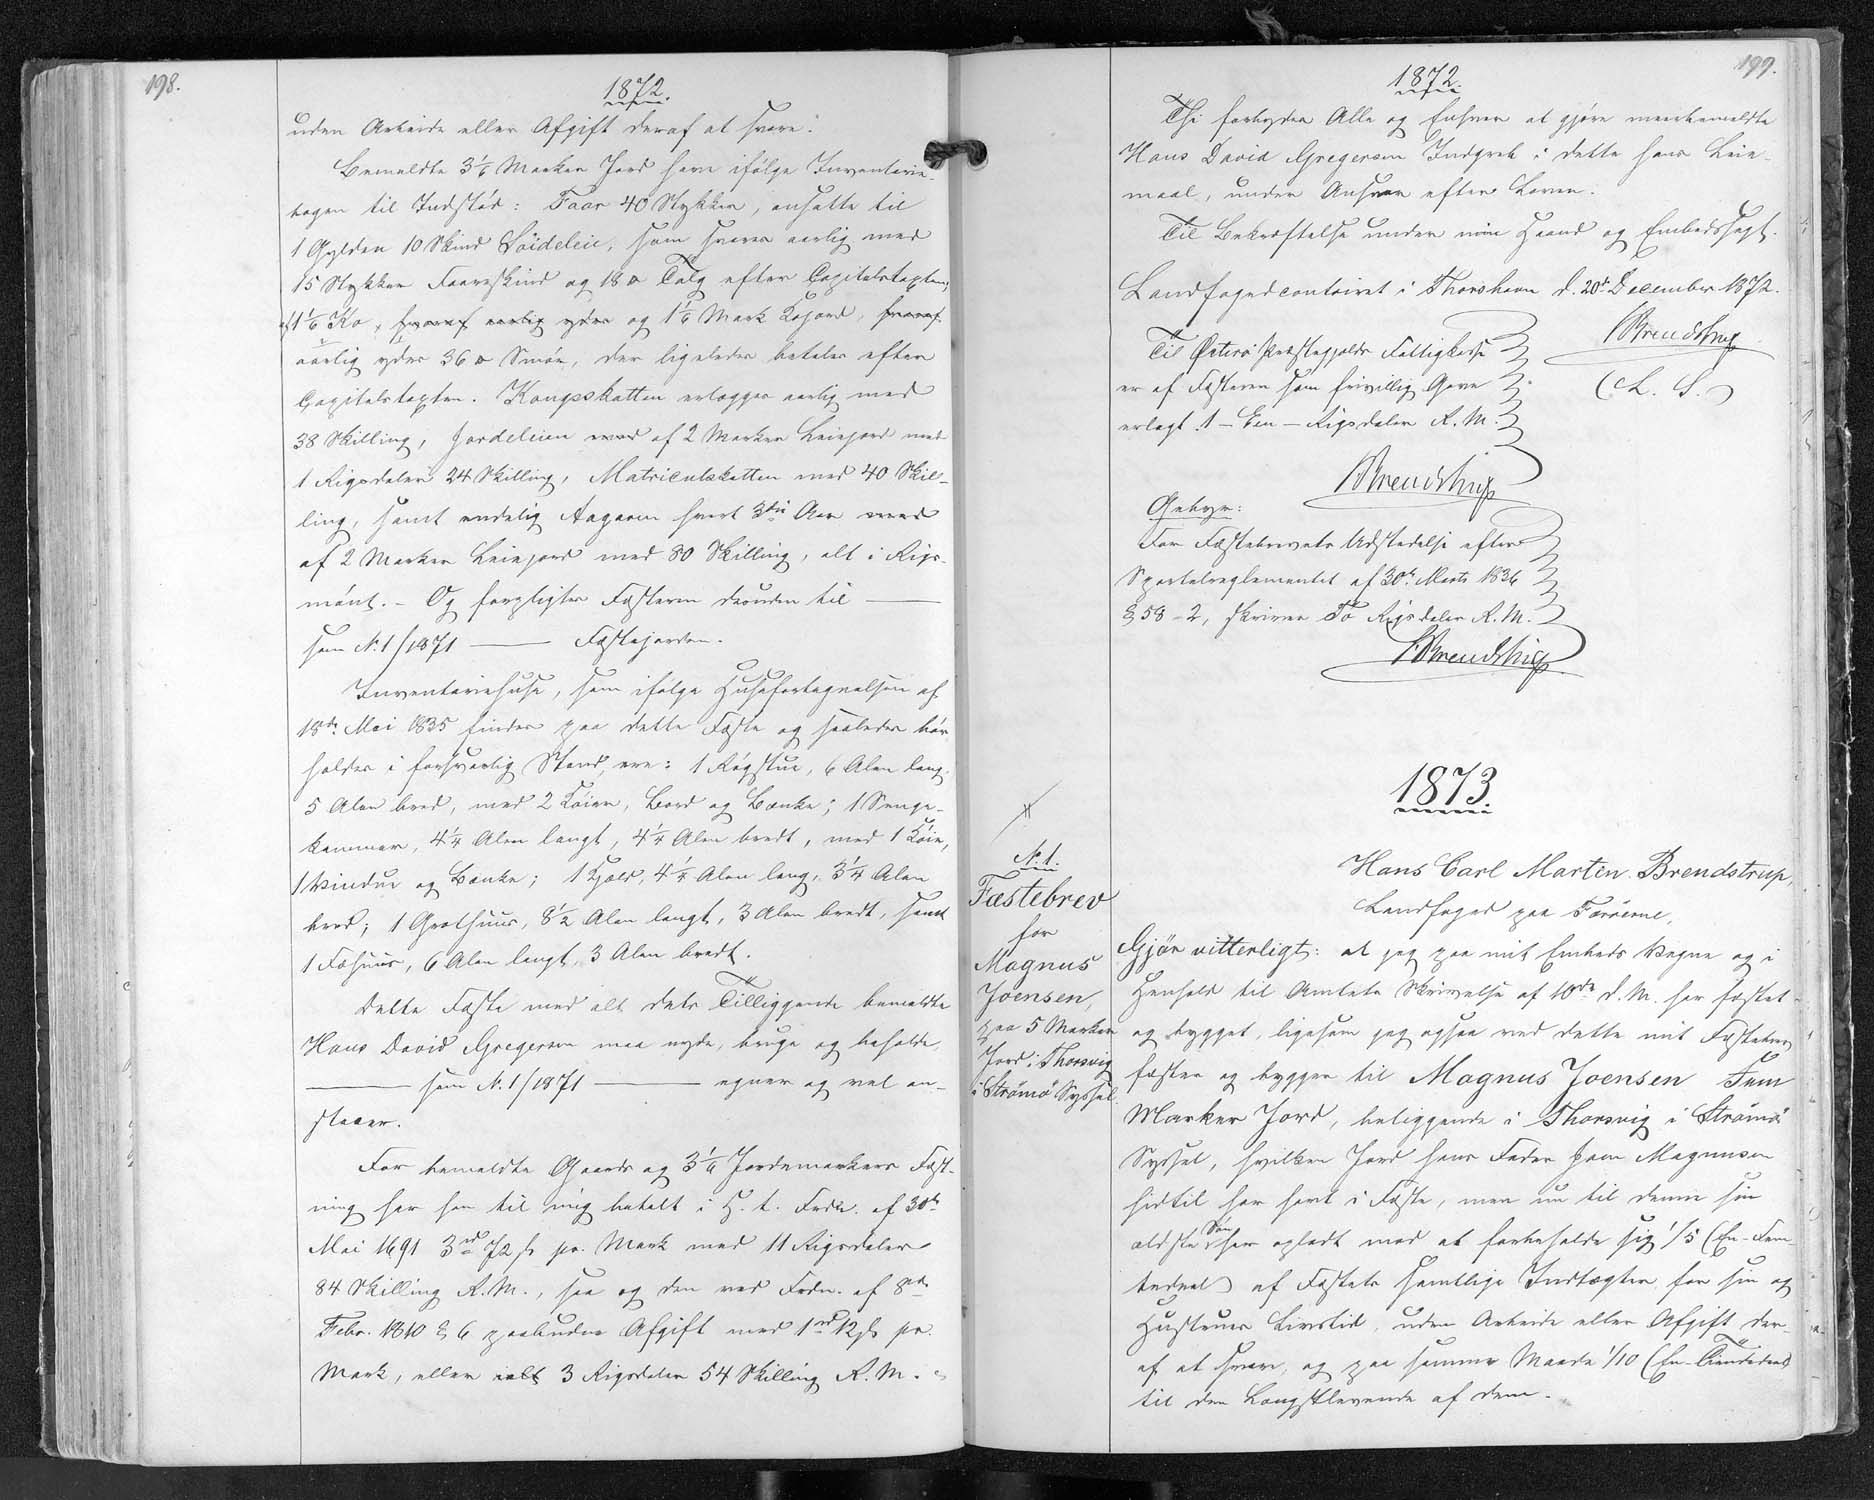 198.
1872.
uden Arbeide eller Afgift deraf at svare."
Bemeldte 3 1/6 Marker Jord have ifølge Inventarie-
bogen til Indstød: Faar 40 Stykker, ansatte til
1 Gylden 10 Skind Søideleie, som svares aarlig med
15 Stykker Faareskind og 18 ℔ Talg efter Capitelstaxten;
1 1/6 Ko, hvoraf aarlig ydes og 1 1/6 Mark Kojord, hvoraf
aarlig ydes 36 ℔ Smör, der ligeledes betales efter
Capitelstaxten. Kongsskatten erlægges aarlig med
38 Skilling, Jordeleien med af 2 Marker Leiejord med
1 Rigsdaler 24 Skilling, Matriculskatten med 40 Skil-
ling, samt endelig Aagaven hvert 3die Aar med
af 2 Marker Leiejord med 80 Skilling, alt i Rigs-
mönt. - Og forpligtes Fæsteren desuden til ——
som No 1/1871 —— Fæstejorden.
Inventariehuse, som ifølge Husefortegnelsen af
18de Mai 1835 findes paa dette Fæste og saaledes bör
holdes i forsvarlig Stand, ere: 1 Rögstue, 6 Alen lang,
5 Alen bred, med 2 Köier, Bord og Bænke; 1 Senge-
kammer, 4 1/4 Alen langt, 4 1/4 Alen bredt, med 1 Köie,
1 Vindue og Bænke; 1 Hjald, 4 1/4 Alen lang, 3 1/4 Alen
bred; 1 Grothuus, 8 1/2 Alen langt, 3 Alen bredt, samt
1 Fæhuus, 6 Alen langt, 3 Alen bredt.
Dette Fæste med alt dets Tilliggende bemeldte
Hans David Gregersen maa nyde, bruge og beholde,
—— som No. 1/1871 —— egner og vel an-
staaer.
For bemeldte Gaards og 3 1/6 Jordemarkers Fæst-
ning har han til mig betalt i H. t. Frdn. af 30te
Mai 1691 3rd 72 ß pr. Mark med 11 Rigsdaler
84 Skilling R.M., saa og den ved Frdn. af 8de
Febr. 1810 § 6 paabudne Afgift med 1rd 12 ß pr.
Mark, eller ialt 3 Rigsdaler 54 Skilling R.M.
199.
1872.
Thi forbydes Alle og Enhver at gjöre meerbemeldte
Hans David Gregersen Indgreb i dette hans Leie-
maal, under Ansvar efter Loven.
Til Bekræftelse under min Haand og Embedssegl.
Landfogedcontoiret i Thorshavn d. 20de December 1872.
Til Østerö Præstegjelds Fattigkasse
er af Fæsteren som frivillig Gave
erlagt 1 - Een - Rigsdaler R.M.
Brendstrup
(L. S.)
Brendstrup
Gebyr:
For Fæstebrevets Udstedelse efter
Sportelreglementet af 30te Marts 1836
§ 58 - 2, skriver To Rigsdaler R.M.
Brendstrup
1873.
No. 1.
Fæstebrev
for
Magnus
Joensen,
paa 5 Marker
Jord i Thorsvig
i Strömö Syssel.
Hans Carl Martin Brendstrup,
Landfoged paa Færöerne,
Gjör vitterligt: at jeg paa mit Embeds Vegne og i
Henhold til Amtets Skrivelse af 10de d. M. har fæstet
og bygget, ligesom jeg ogsaa ved dette mit Fæstebrev
fæster og bygger til Magnus Joensen Fem
Marker Jord, beliggende i Thorsvig i Strömö
Syssel, hvilken Jord hans Fader Joen Magnusen
hidtil har havt i Fæste, men nu til denne sin
ældste Sön har opladt mod at forbeholde sig 1/5 (En-Fem
tedeel) af Fæstets samtlige Indtægter for sin og
Hustrues Livstid, uden Arbeide eller Afgift der-
af at svare, og paa samme Maade 1/10 (En-Tiendedeel)
til den Længstlevende af dem.